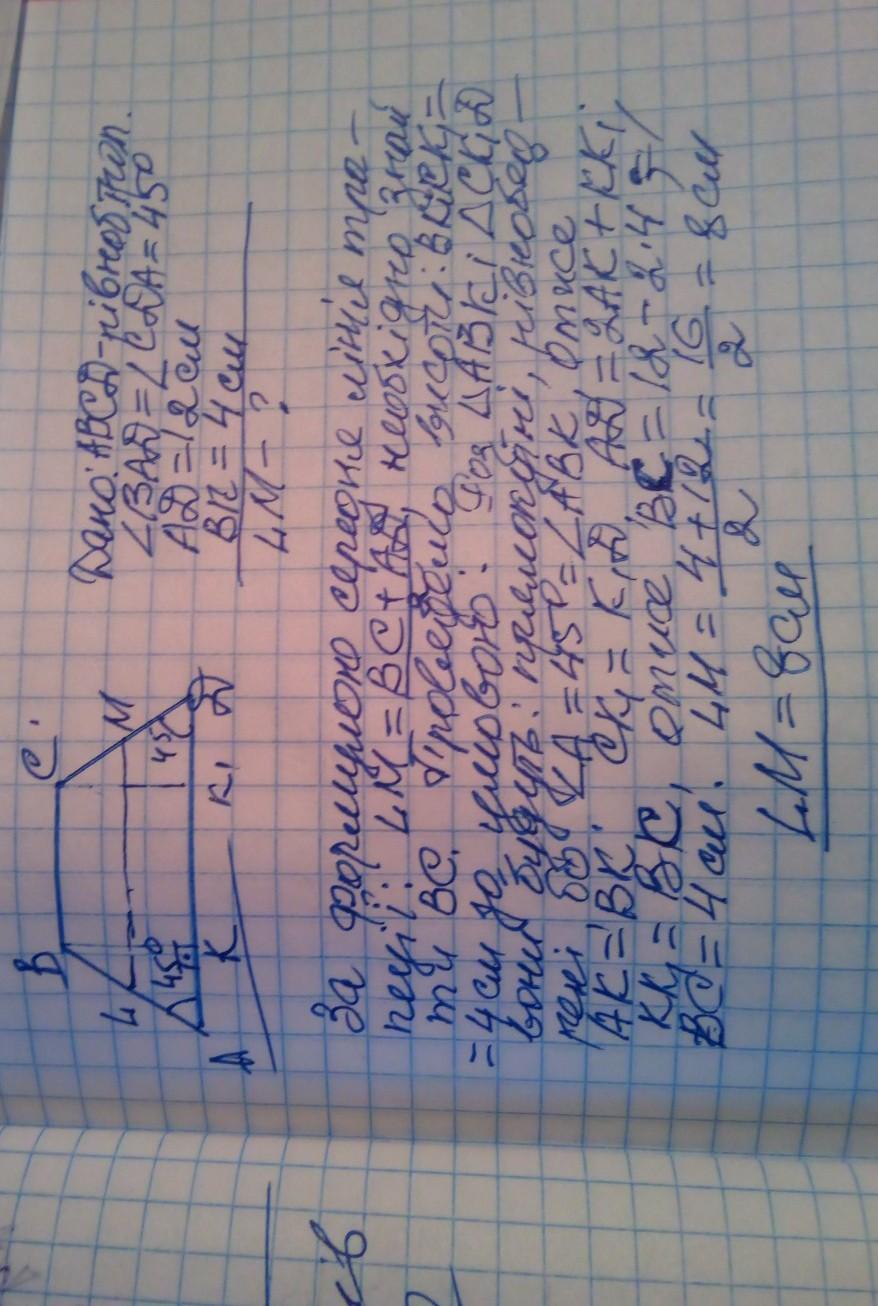 B
C
Ч
M
45°
45°
A
K
K₁
D
Дано: ABCD-рівноб. трап.
∠BAD=∠CDA=45°
AD=12см
BK=4см
ЧM-?
За формулою середня лінія тра-
пеції: ЧM=BC+AD/2, необхідно знай
ти BC. Проведемо висоти: BK і CK₁=
=4см за умовою. Два ΔABK і ΔCK₁D
вони будуть: прямокутні, рівнобед-
рені бо ∠A=45°=∠ABK, отже
AK=BK. CK₁=K₁D. AD=2AK+KK₁
KK₁=BC, отже BC=12-2·4=
BC=4см. ЧM=4+12/2=16/2=8см
ЧM=8см
ів